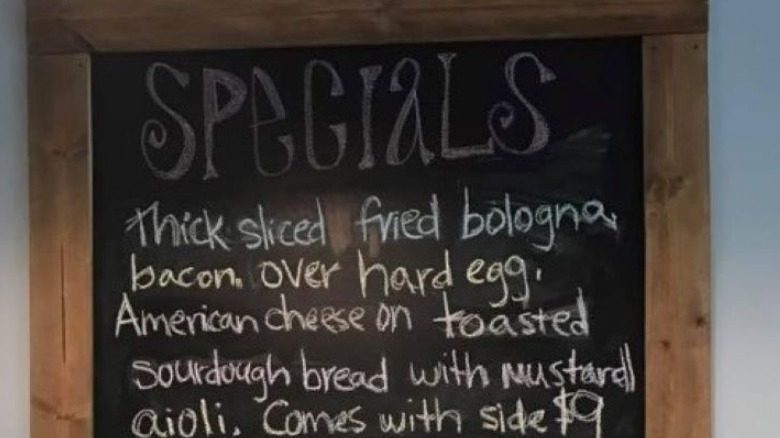 SPECIALS
Thick sliced fried bologna,
bacon. over hard egg.
American cheese on toasted
sourdough bread with mustard
aioli. Comes with side $9